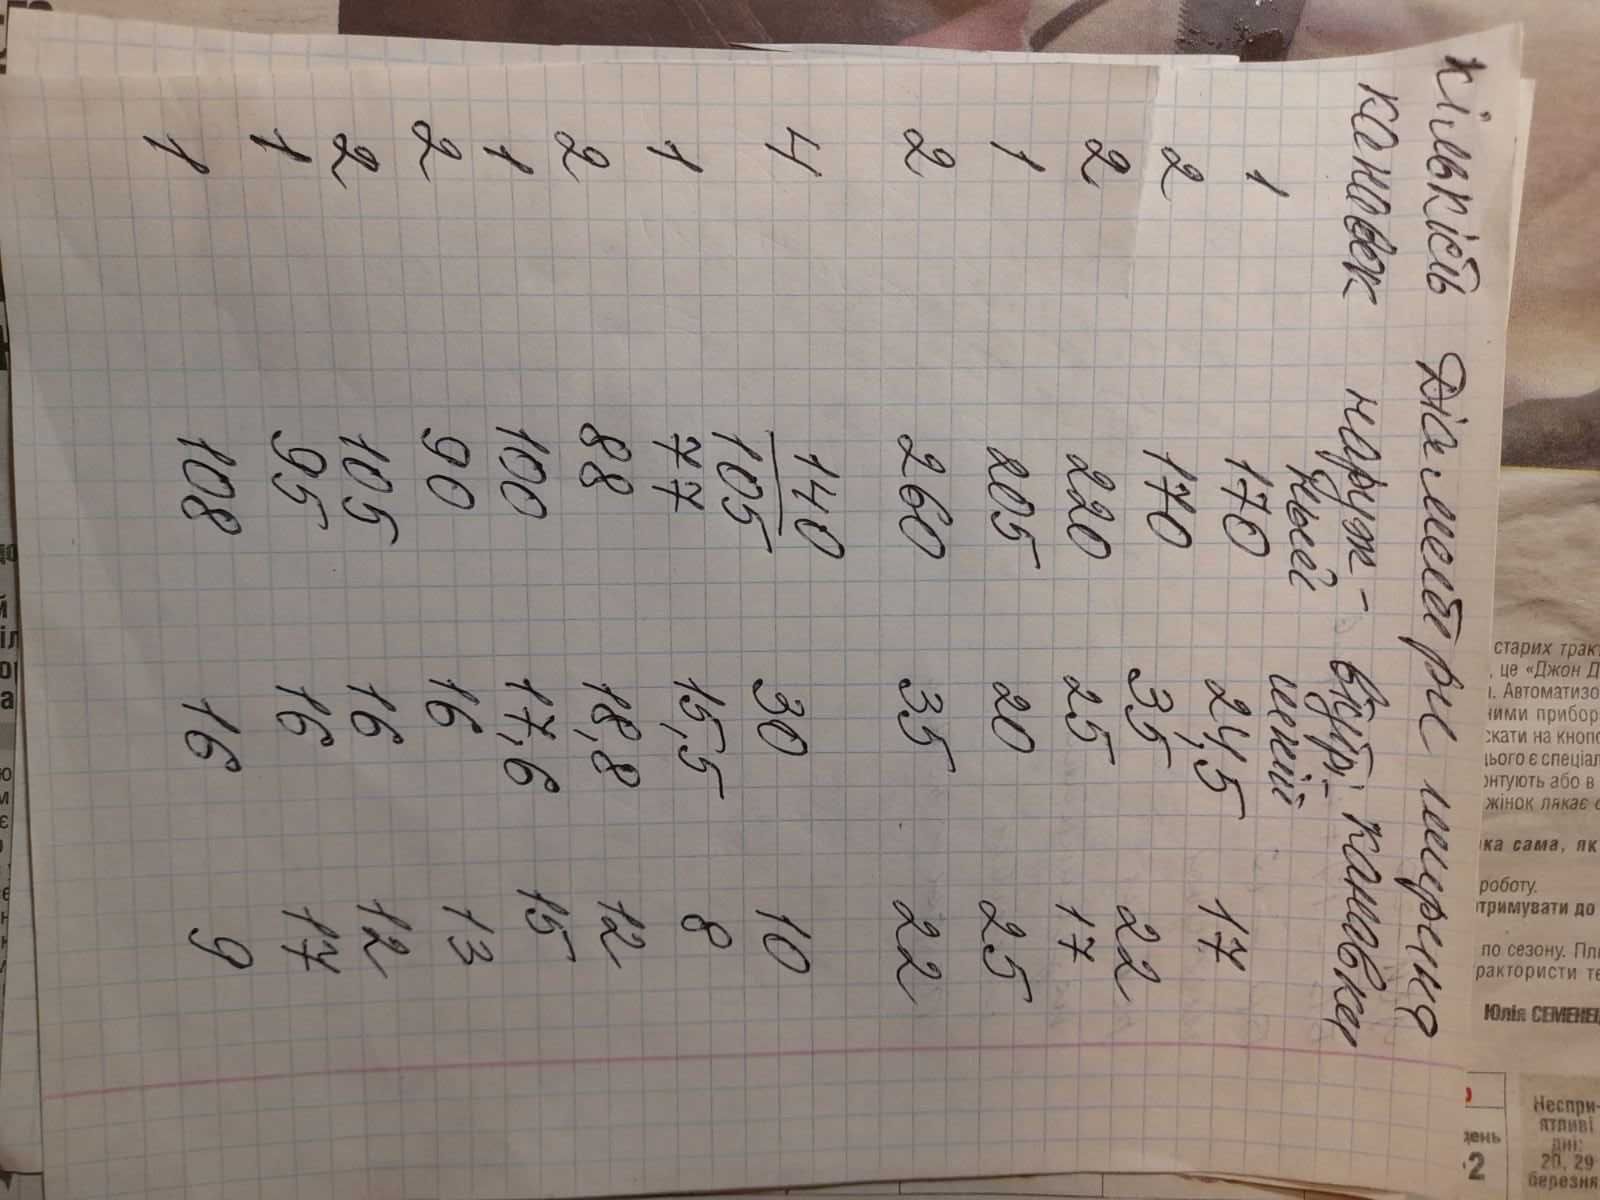 Кількість Діаметри шкурена
канавок наруж- внутрі канавки
ный шній
1 170 24,5 17
2 170 35 22
2 220 25 17
1 205 20 25
2 260 35 22
4 140 30 10
105
1 77 15,5 8
2 88 18,8 12
1 100 17,6 15
2 90 16 13
2 105 16 12
1 95 16 17
1 108 16 9
старих тракт
, це «Джон Д
. Автоматизо
ними прибор
скати на кнопо
цього є спеціал
онтують або в
жінок лякає
ка сама, як
роботу.
отримувати до
по сезону. Пл
рактористи те
Юлія СЕМЕНЕ
день
2
Неспри-
ятливі
дні:
20, 29
березня